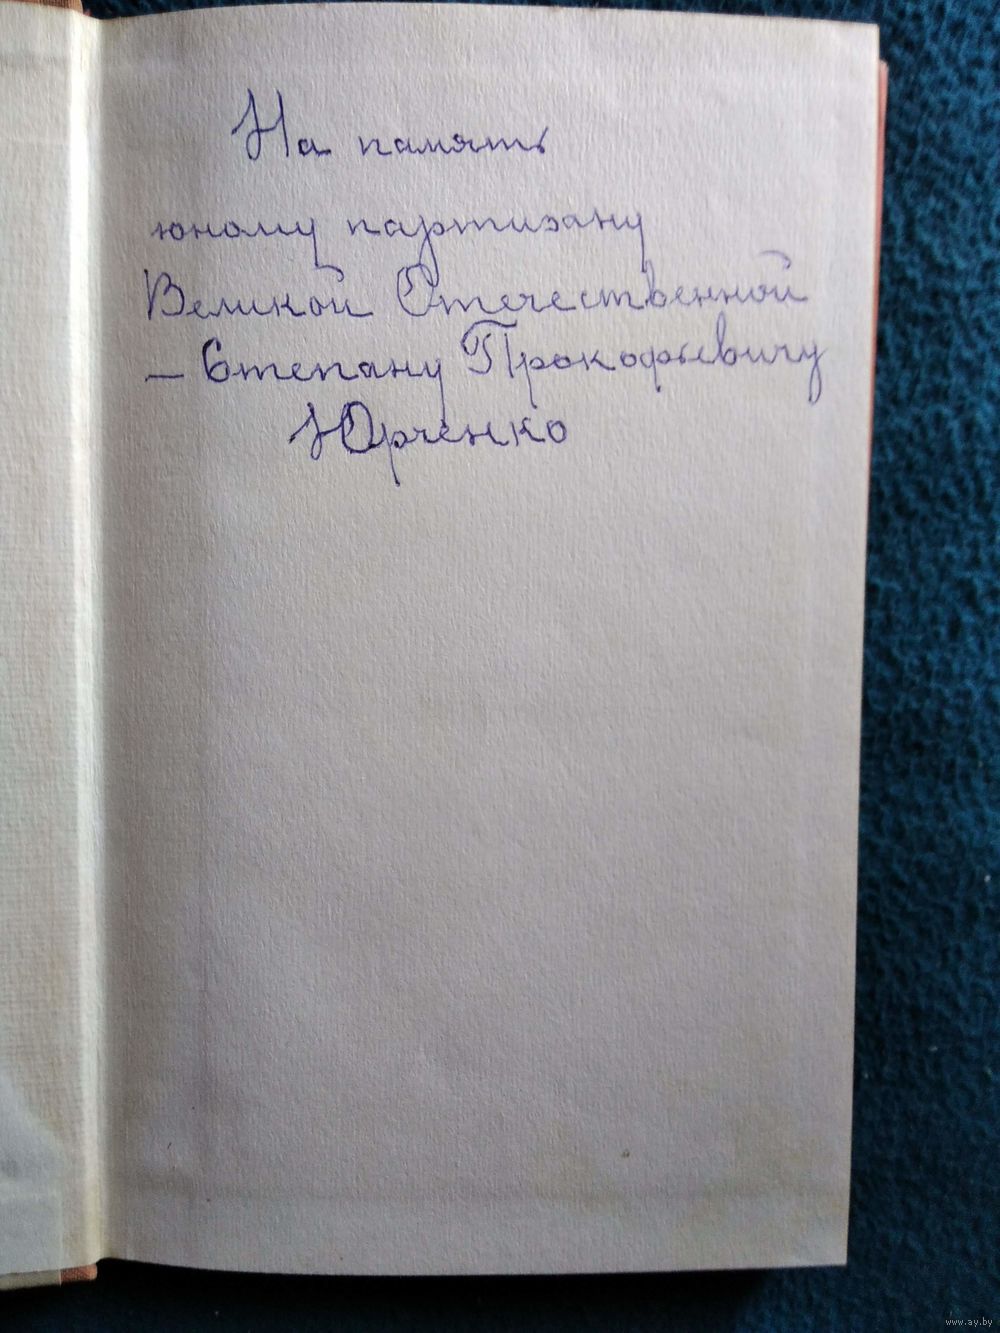 На память
юному партизану
Великой Отечественной
— Степану Прокофьевичу
Юрченко
www.ay.by